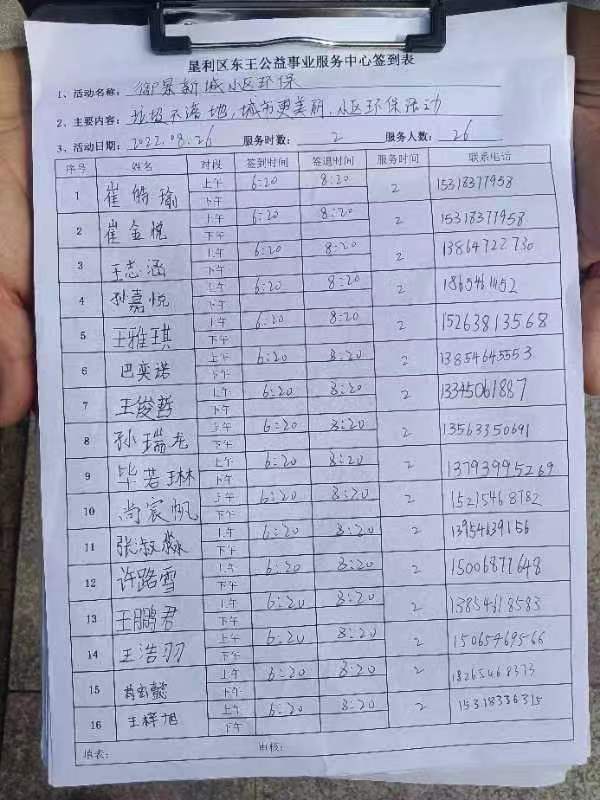 垦利区东王公益事业服务中心签到表
1、活动名称: 御景新城小区环保
2、主要内容: 垃圾不落地,城市更美丽,小区环保活动
3、活动日期: 2022.08.26 服务时数: 2 服务人数: 26
序号 姓名 时段 签到时间 签退时间 服务时间 联系电话
1 崔皓瑜 上午 6:20 8:20 2 15318377958
下午
2 崔金悦 上午 6:20 8:20 2 15318377958
下午
3 王志涵 上午 6:20 8:20 2 13864722730
下午
4 孙嘉悦 上午 6:20 8:20 2
下午
5 王雅琪 上午 6:20 8:20 2 15263813568
下午
6 巴奕诺 上午 6:20 8:20 2 13854645553
下午
7 王俊哲 上午 6:20 8:20 2 13345061887
下午
8 孙瑞龙 上午 6:20 8:20 2 13563350691
下午
9 毕若琳 上午 6:20 8:20 2 13793995269
下午
10 尚宸帆 上午 6:20 8:20 2 15215468782
下午
11 张淑淼 上午 6:20 8:20 2 13954639156
下午
12 许路雪 上午 6:20 8:20 2 15006877648
下午
13 王鹏君 上午 6:20 8:20 2 13854618583
下午
14 王浩羽 上午 6:20 8:20 2 15065469566
下午
15 上午 6:20 8:20 2 18265468373
下午
16 王梓旭 上午 6:20 8:20 2 15318336315
下午
填表: 审核: